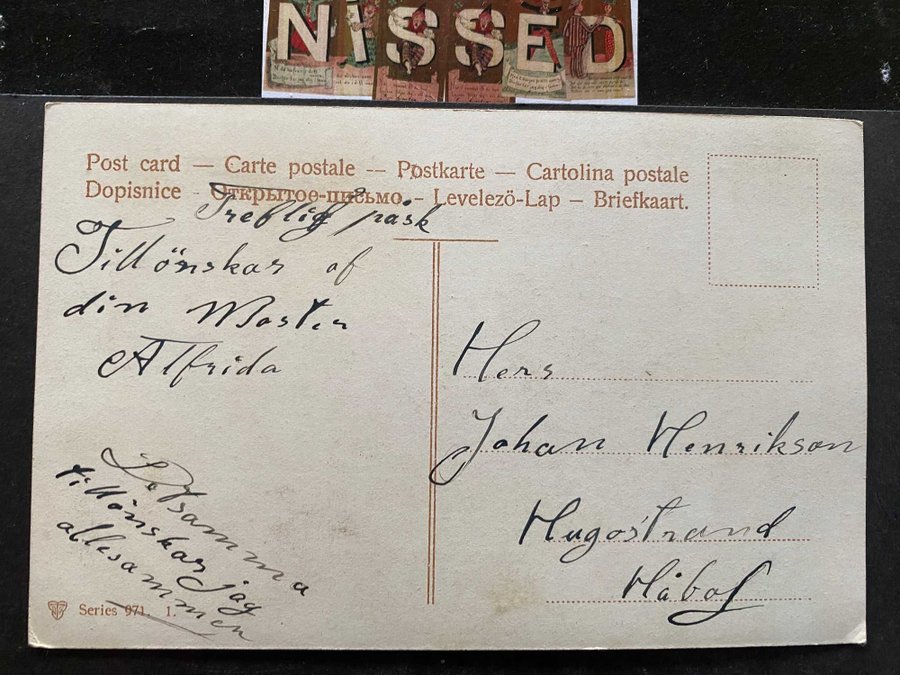 NISSED
Post card — Carte postale -- Postkarte — Cartolina postale
Dopisnice - Открытое-письмо. - Levelező-Lap – Briefkaart.
Treflig påsk
Tillönskar af
din Moster
Alfrida
Herr
Johan Henrikson
Hugostrand
Håbol
Detsamma
tillönskar jag
allesammen
Series 971. 1.